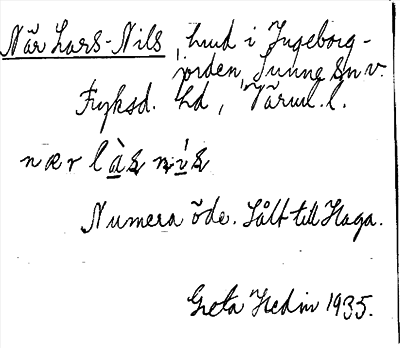 När Lars-Nils, hmd i Ingeborg-
jorden, Sunne sn v.
Fryksd. hd, Värml. l.
nær làs nìs
Numera öde. Sålt till Haga.
Greta Hedin 1935.